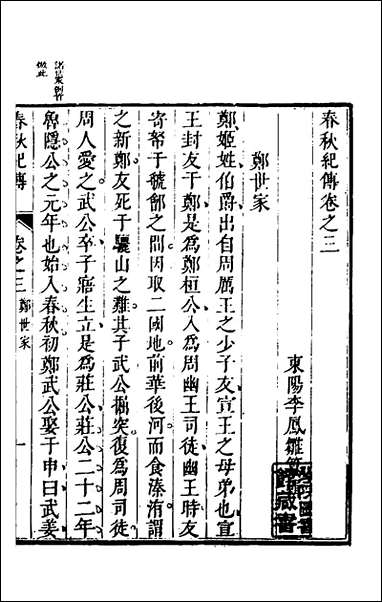 春秋紀傳卷之三
東陽李鳳雛
鄭世家
鄭姬姓伯爵出自周厲王之少子友宣王之母弟也宣
王封友于鄭是爲鄭桓公入爲周幽王司徒幽王時友
寄帑于虢鄶之間因取二國地前華後河而食溱洧謂
之新鄭友死于驪山之難其子武公掘突復爲周司徒
周人愛之武公卒子寤生立是爲莊公莊公二十二年
魯隱公之元年也始入春秋初鄭武公娶于申曰武姜
春秋紀傳 卷之三 鄭世家 一
倣此
館藏書